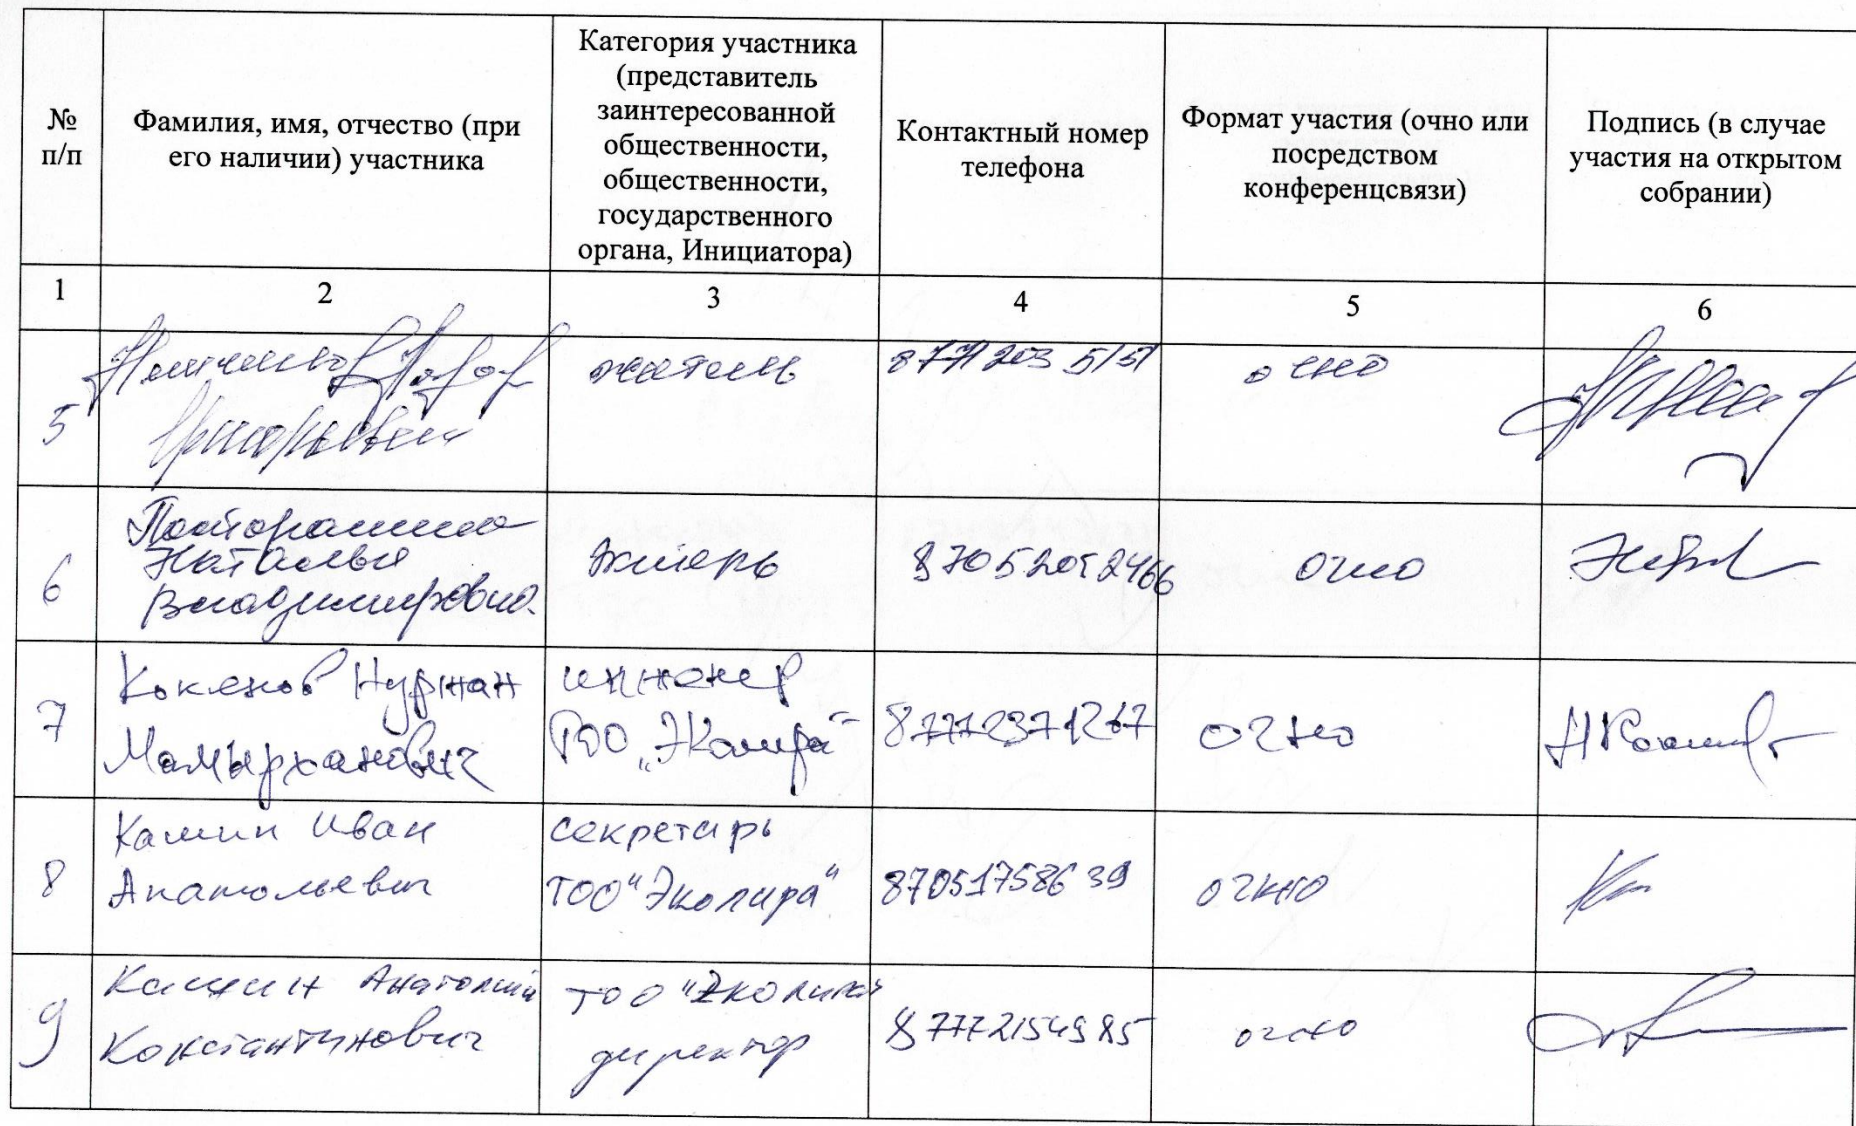 № п/п
Фамилия, имя, отчество (при его наличии) участника
Категория участника (представитель заинтересованной общественности, общественности, государственного органа, Инициатора)
Контактный номер телефона
Формат участия (очно или посредством конференцсвязи)
Подпись (в случае участия на открытом собрании)
1 2 3 4 5 6
5
Григорьевич
житель
очно
6
Наталья
Владимировна
очно
7
Кокенов Нуржан
Мамырханович
инженер
ТОО „Эколира"
87772371267
очно
8
Камин Иван
Анатольевич
секретарь
ТОО "Эколира"
87051758639
очно
9
Камин Анатолий
Константинович
ТОО "Эколира"
директор
87772154985
очно